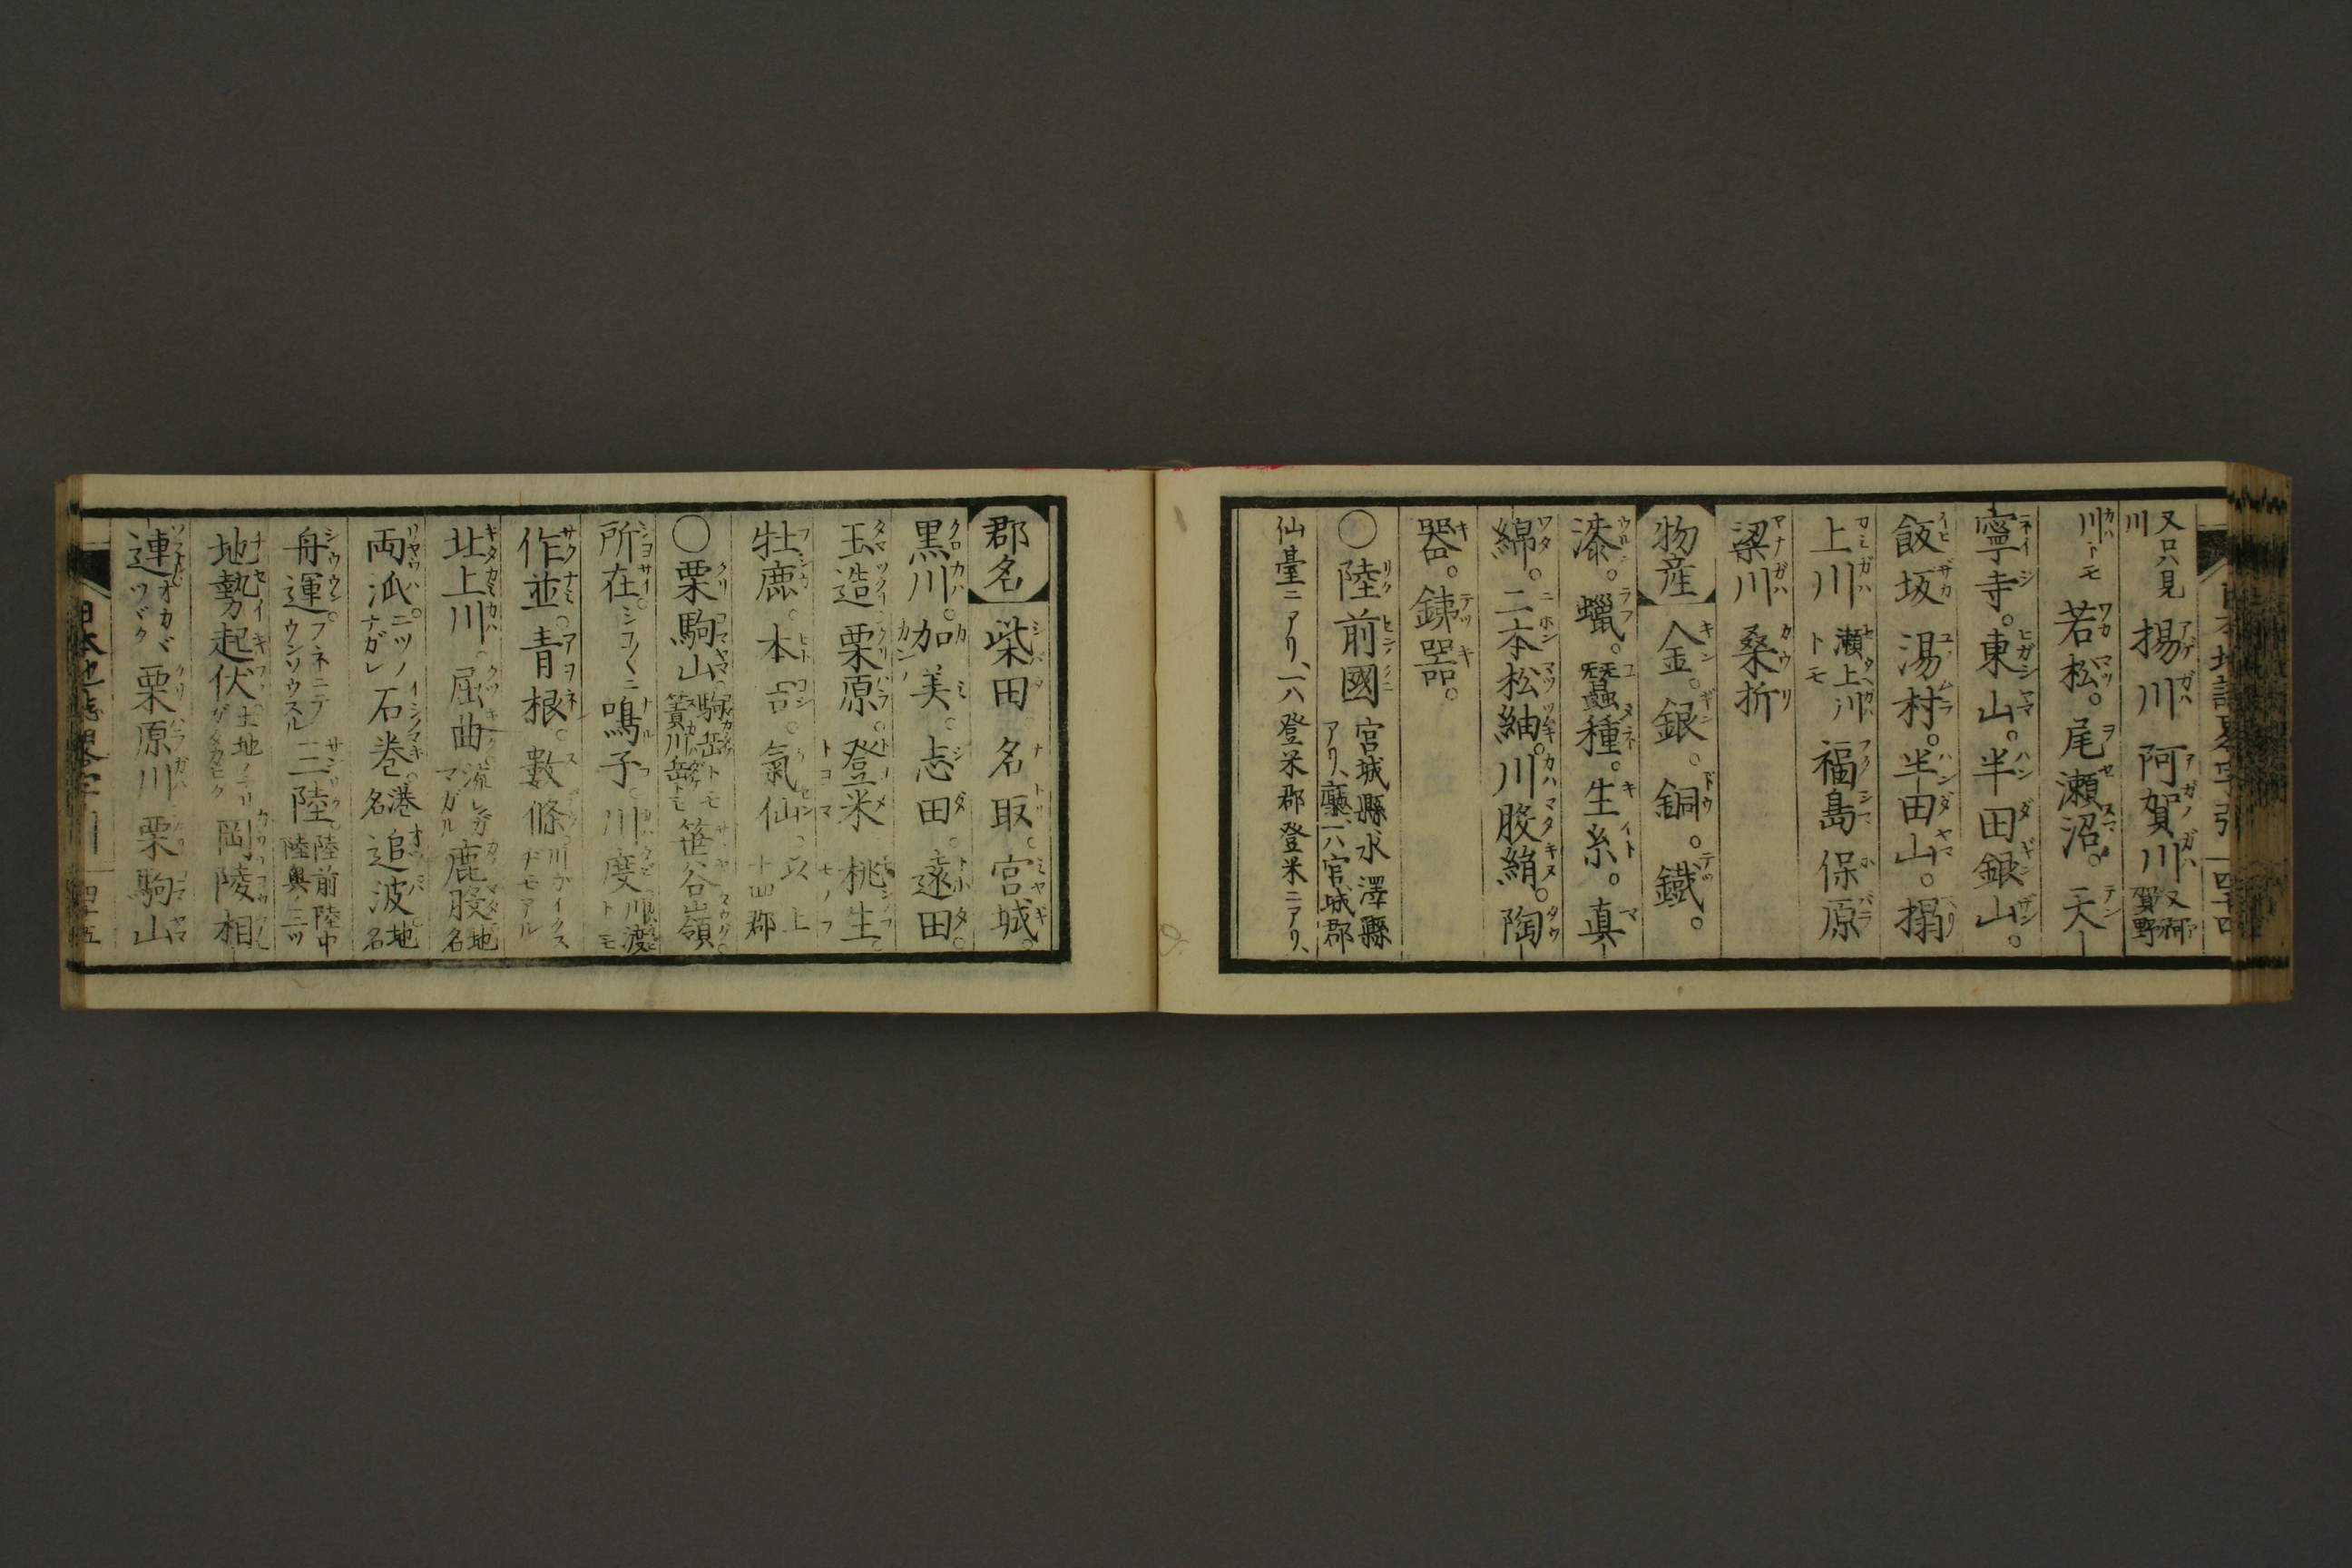 又只見川 揚川 阿賀川 又鄊賀野
川トモ 若松。尾瀬沼。天
寧寺。東山。半田銀山。
飯坂 湯村。半田山。摺
上川 瀬上川トモ 福島 保原
梁川 桑折
物産 金。銀。銅。鐵。
漆。蠟。蠶種。生糸。真
綿。二本松紬。川股絹。陶
器。銕器。
〇陸前國 宮城縣水澤縣アリ、廳一八宮城郡
仙臺ニアリ、一八登米郡登米ニアリ、
郡名 柴田 名取。宮城。
黒川。加美。志田。遠田。
玉造 栗原。登米 桃生。
牡鹿。本吉。氣仙。以上十四郡
〇栗駒山 駒岳トモ 笹谷嶺。
所在。 鳴子。川度 川渡トモ
作並。青根。數條。
北上川。屈曲。流レガマガル 鹿股 地名
両派。二ツノナガレ 石巻。港名 追波 地名
舟運。フネニテウンソウスル 三陸。陸前陸中陸奥ノ三ツ
地勢起伏 岡陵相
連 ツヾク 栗原川 栗駒山
四十五